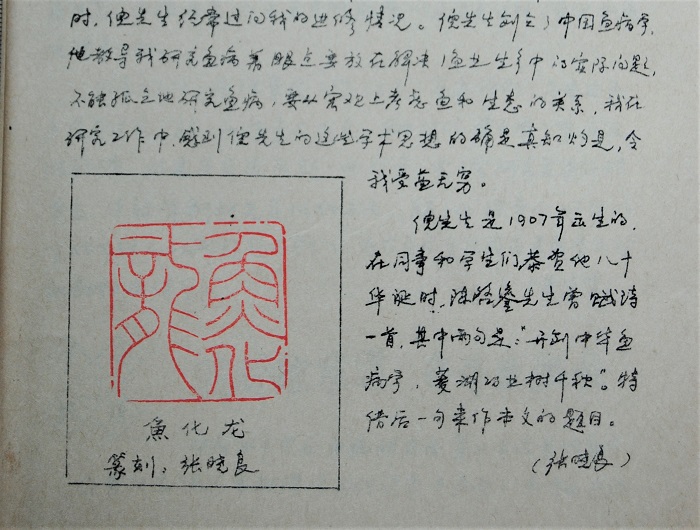 时，倪先生经常过问我的进修情况。倪先生创立了中国鱼病学，
他教导我研究鱼病着眼点要放在解决渔业生产中的实际问题，
不能孤立地研究鱼病，要从宏观上考虑鱼和生态的关系，我在
研究工作中，感到倪先生的这些学术思想的确是真知灼见，令
我受益无穷。
倪先生是1907年出生的，
在同事和学生们恭贺他八十
华诞时，陈先生曾赋诗
一首，其中两句是：“开创中华鱼
病学，菱湖功业树千秋”。特
借后一句来作本文的题目。
（张晓良）
魚化龙
魚化龙
篆刻：张晓良